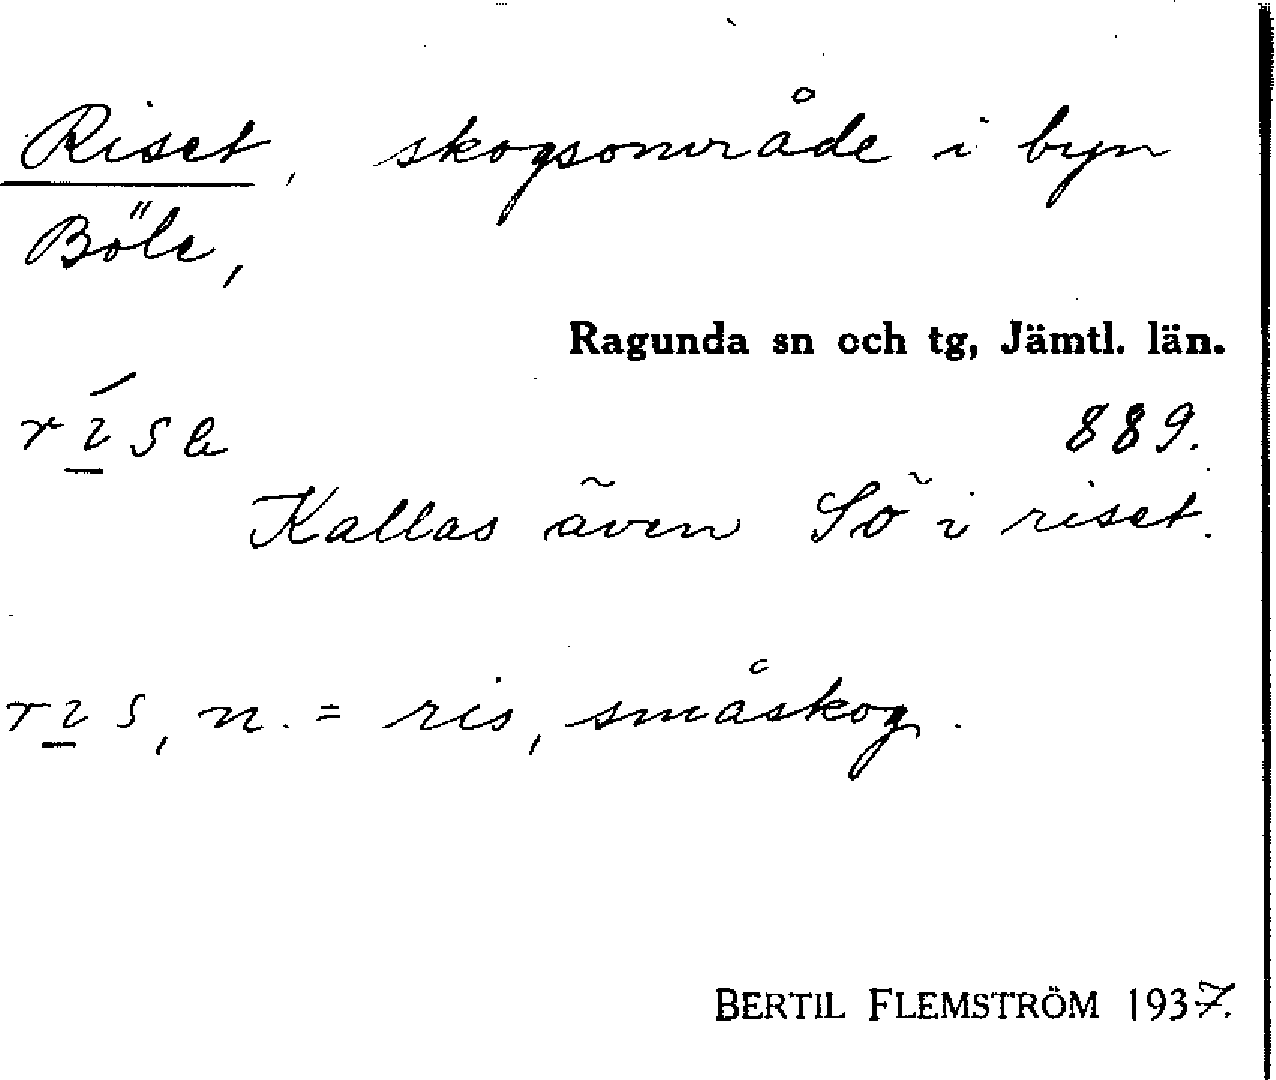 Riset, skogsområde i byn
Böle,
Ragunda sn och tg, Jämtl. län.
889.
Kallas även Sö i riset.
n. = ris, småskog.
BERTIL FLEMSTRÖM 1937.